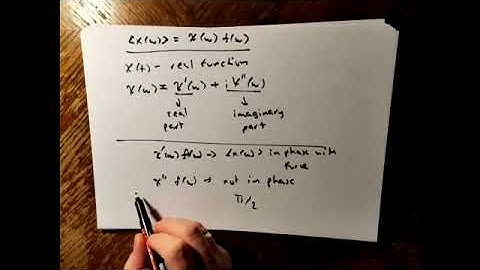 <x(ω)> = χ(ω) f(ω)
χ(t) - real function
χ(ω) = χ'(ω) + i χ''(ω)
↓ ↓
real imaginary
part part
χ'(ω) f(ω) → <x(ω)> in phase with
force
χ'' f(ω) → not in phase
π/2